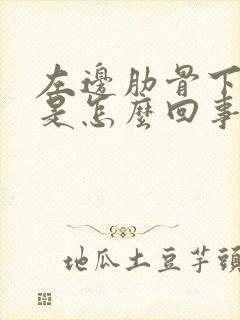 左邊肋骨下
是怎麼回事
地瓜土豆芋頭